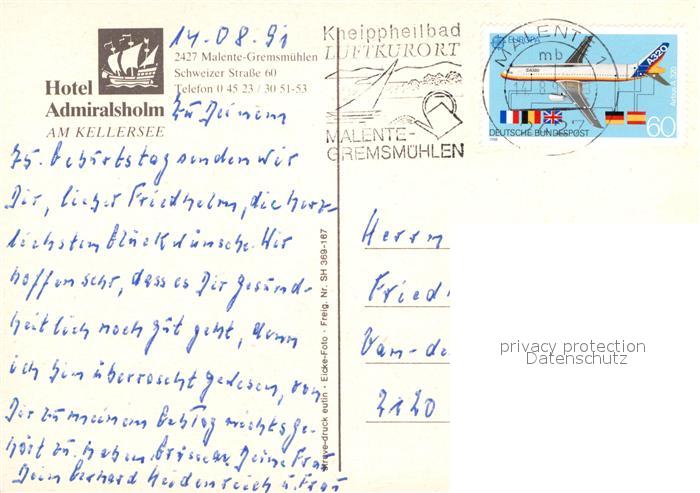 14.08.91
Hotel
Admiralsholm
AM KELLERSEE
2427 Malente-Gremsmühlen
Schweizer Straße 60
Telefon 0 45 23 / 30 51-53
Zu Deinem
75. Geburtstag senden wir
Dir, lieber Friedhelm, die herz-
lichsten Glückwünsche. Wir
hoffen sehr, dass es Dir gesund-
heitlich noch gut geht, denn
ich bin überrascht gewesen, von
Dir zu meinem Gebtag nichts ge-
hört zu haben. Grüsse Deine Frau
Dein Gerhard Heidenreich u. Frau
-druck eutin · Eicke-Foto · Freig. Nr. SH 369-167
Kneippheilbad
LUFTKURORT
MALENTE-
GREMSMÜHLEN
MALENTE 1
mb
2427
EUROPA
A320
Airbus A 320
DEUTSCHE BUNDESPOST
60
1988
Herrn
Fried
Van-de
2120
privacy protection
Datenschutz